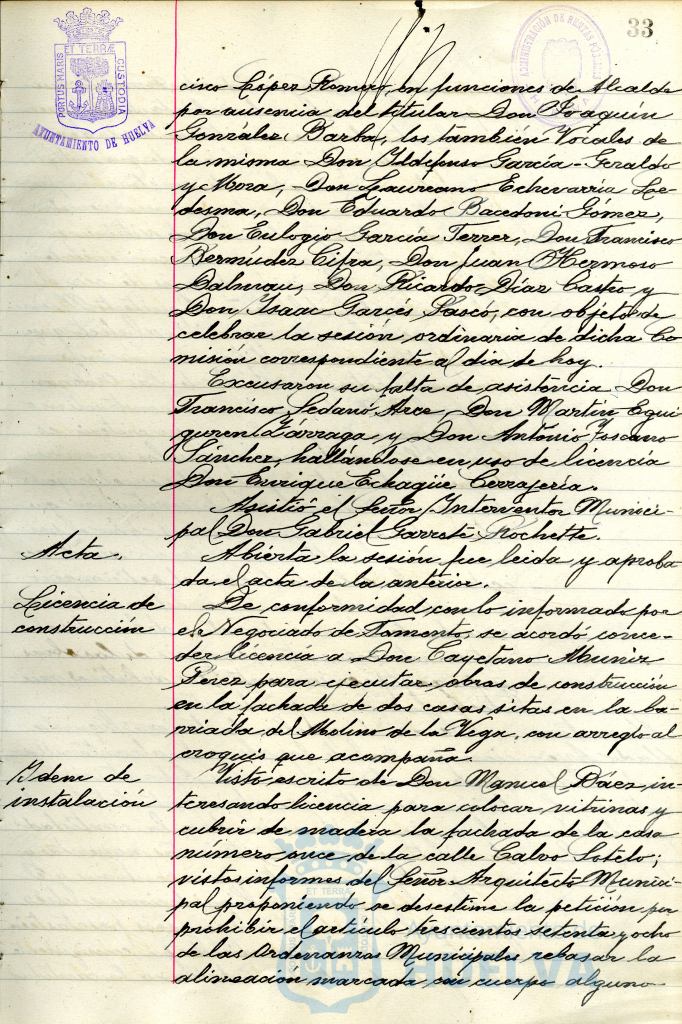 33
PORTUS MARIS ET TERRÆ CUSTODIA
AYUNTAMIENTO DE HUELVA
ADMINISTRACIÓN DE RENTAS PÚBLICAS
cisco López Romero, en funciones de Alcalde
por ausencia del titular Don Joaquín
González Barba, los también Vocales de
la misma Don Ildefonso García-Geraldo
y Mora, Don Laureano Echevarría Le-
desma, Don Eduardo Bacedoni Gómez,
Don Eulogio García Terrer, Don Francisco
Bermúdez Cifra, Don Juan Hermoso
Dalmau, Don Ricardo Díaz Castro y
Don Isaac Garcés Pascó, con objeto de
celebrar la sesión ordinaria de dicha Co
misión correspondiente al dia de hoy.
Excusaron su falta de asistencia Don
Francisco Sedano Arce, Don Martín Egui
guren Yárraga, y Don Antonio Toscano
Sánchez, hallándose en uso de licencia
Don Enrique Echagüe Cerrajería.
Asistió el Señor Interventor Munici-
pal Don Gabriel Garrote Rochette.
Acta.
Abierta la sesión fue leida y aproba
da el acta de la anterior.
Licencia de
construcción
De conformidad con lo informado por
el Negociado de Fomento, se acordó conce-
der licencia a Don Cayetano Muniz
Pérez para ejecutar obras de construcción
en la fachada de dos casas sitas en la ba-
rriada del Molino de la Vega, con arreglo al
croquis que acompaña.
Idem de
instalación
Visto escrito de Don Manuel Báez, in-
teresando licencia para colocar vitrinas y
cubrir de madera la fachada de la casa
número once de la calle Calvo Sotelo;
vistos informes del Señor Arquitecto Munici-
pal proponiendo se desestime la petición por
prohibir el artículo trescientos setenta y ocho
de las Ordenanzas Municipales rebasar la
alineación marcada con cuerpo alguno
ET TERRÆ
HUELVA